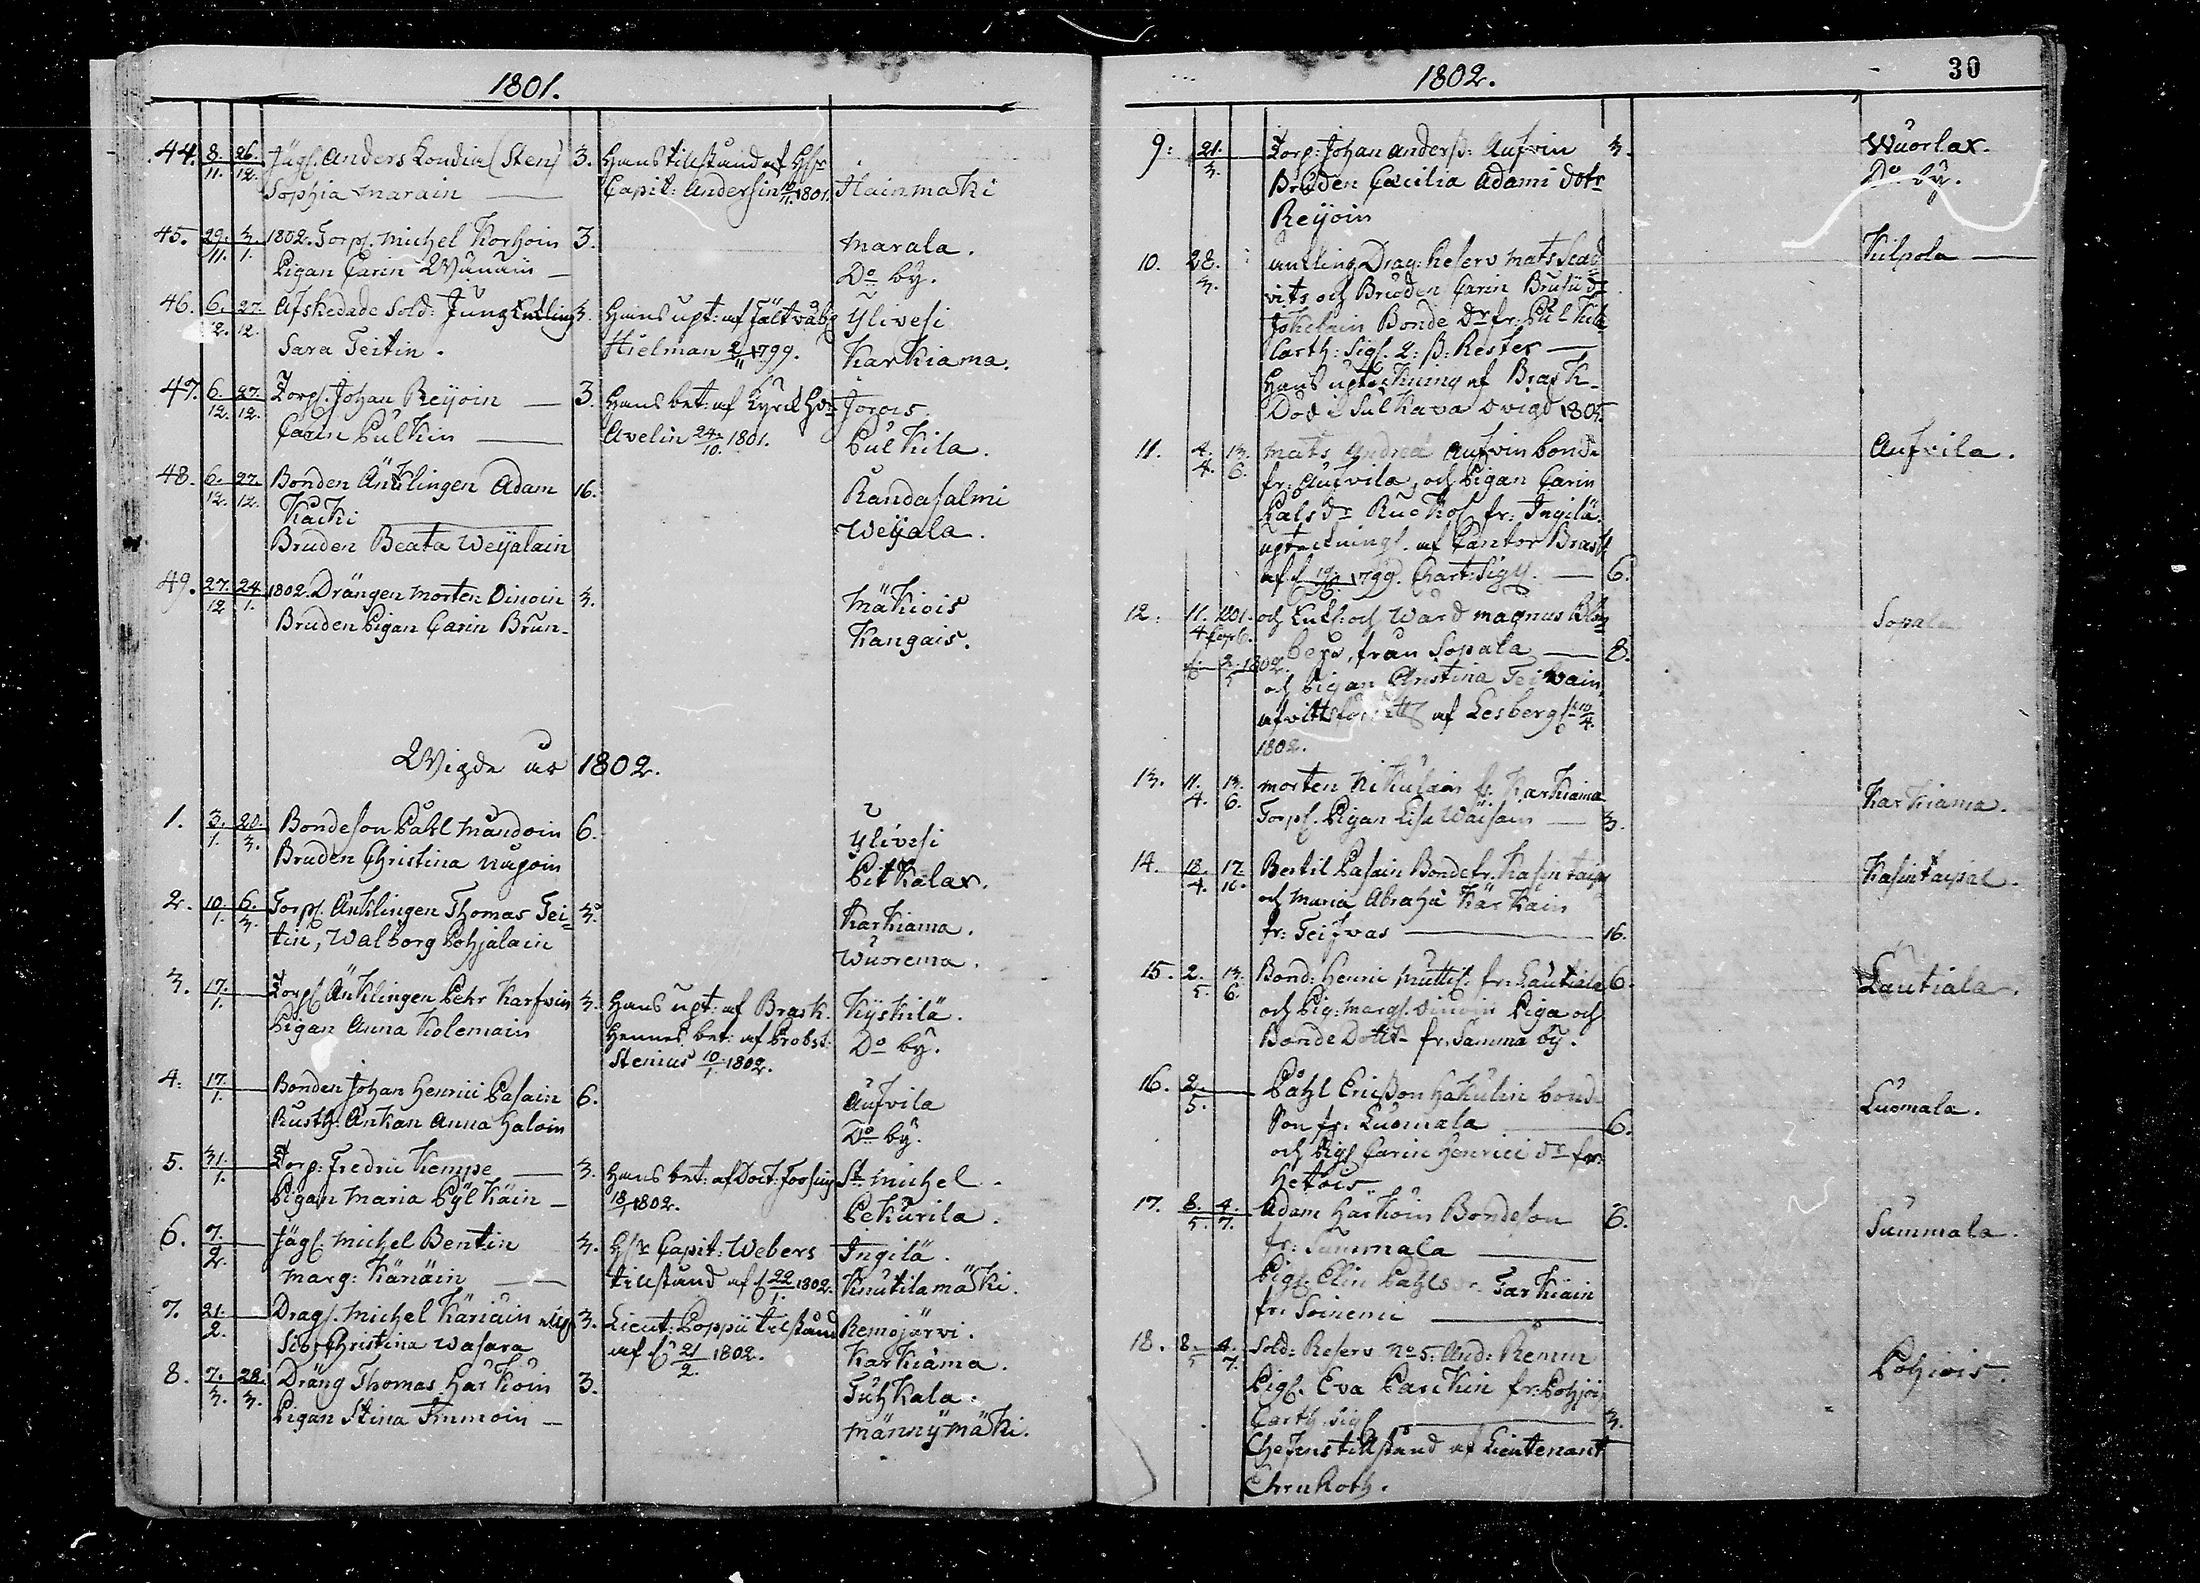 1801.
44. 8./11. 26./12. Jägs. Anders Londin (Sten) 3. Hans tillstånd af H:r
Sophia Marain — Capit: Andersin 19/11. 1801. Hainmaki
45. 29./11. 3./1. 1802. Torps. Michel Korhoin 3. Marala.
Pigan Carin Wänäin — Do by.
46. 6./12. 27./12. Afskedade Sold: Jung Enkling 3. Hans upt: af Fältwäb: Ylivesi
Sara Teitin. Hielman 2/11 1799. Karkiama.
47. 6./12. 27./12. Torps. Johan Reijoin — 3. Hans bet: af Kyrck H: Jorois.
Carin Pulkin — Avelin 24/10. 1801. Pulkila.
48. 6./12. 27./12. Bonden Änklingen Adam 16. Randasalmi
Käcki Weijala.
Bruden Beata Weijalain
49. 27./12 24./1. 1802. Drängen Morten Oinoin 3. Mäkiois
Bruden Pigan Carin Brun- Kangais.
Wigde år 1802.
1. 3./1. 20./3. Bondeson Påhl Mandoin 6. Ylivesi
Bruden Christina Nugoin Pitkälax.
2. 10./1. 6./3. Torps. Änklingen Thomas Tei- 3. Karkiama.
tin, Walborg Pohjalain Wuorema.
3. 17./1. Torps. Änklingen Pehr Karfvin 3. Hans upt: af Brask. Kyskilä.
Pigan Anna Kolemain Hennes bet: af Probst: Do by.
Stenius 10/1. 1802.
4. 17./1. Bonden Johan Henrici Pasain 6. Aufvila
Rusth: Änkan Anna Haloin Do by.
5. 31./1. Torp: Fredric Kempe — 3. Hans bet: af Doct: St Michel.
Pigan Maria Pylkäin — 18/1 1802. Pekurila.
6. 7./2. Jägs. Michel Bentin 3. H:r Capit: Webers Ingilä.
Marg: Känäin — tillstånd af d. 22/1. 1802. Knutilamäki.
7. 21./2. Drags. Michel Käriäin 3. Lieut: Poppii tilstånd Remojärvi.
Christina Wasara af d. 21/2. 1802. Karkiama.
8. 7./3. 28./3. Dräng Thomas Harkoin 3. Tuhkala.
Pigan Stina Immoin — Männymäki.
1802.
30
9: 21./3. Torp: Johan Anderss: Aufvin 3. Wuorlax.
Bruden Cæcilia Adami dotr Do by.
Reijoin
10. 28./3. Änkling Drag: Reserv Mats Sca Kilpola —
vits och Bruden Carin
Jokelain Bonde Dr fr. Pulkila
Carth: Sigs. 2: ß: Rester —
Hans upteckning af Brask-
Död i Sulkava ovigd 1805.
11. 4./4. 13./6. Mats Andreæ Aufvin bonde Aufvila.
fr: Aufvila, och Pigan Carin
Pålsdr Ruokoi fr: Ingilä.
uptecknings. af Cantor Brask
af d. 1799. Chart: Sig — 6.
12: 11./4 1801. och Enkl: och Ward Magnus Blom- Sopala
berg, från Sopala — 8.
2/5 1802. och Pigan Christina Teivain
af Lesberg 10/4.
1802.
13. 11./4. 13./6. Morten Nikulain fr. Karkiama Karkiama.
Torps. Pigan Lisa Waisain — 3.
14. 18./4. 17/10. Bertil Pasain Bonde fr. Kasintaip: Kasintaipal.
och Maria Abrahi Kärkäin
fr: Teifvas — 16.
15. 2./5. 13./6. Bond: Henric Mutti fr: Lautiala 6. Lautiala.
och Pig: Marg: Oinoin Piga och
Bonde Dottr fr. Samma by.
16. 2./5. Påhl Ericsson Hakulin bonde Luomala.
Son fr: Luomala — 6.
och Pigs. Carin Henrici dr fr:
Hetois
17. 8./5. 4./7. Adam Harkoin Bondeson 6. Summala.
fr: Summala —
Pigs. Elin Påhlsdr. Tarkiain
fr. Soinemi —
18. 8./5 4./7. Sold: Reserv No 5. And: Remm Pohiois.
Pigs. Eva Parckin fr: Pohjois
Carth. Sigs. — 3.
Chefens tillstånd af Lieutenant
Ehrnroth.